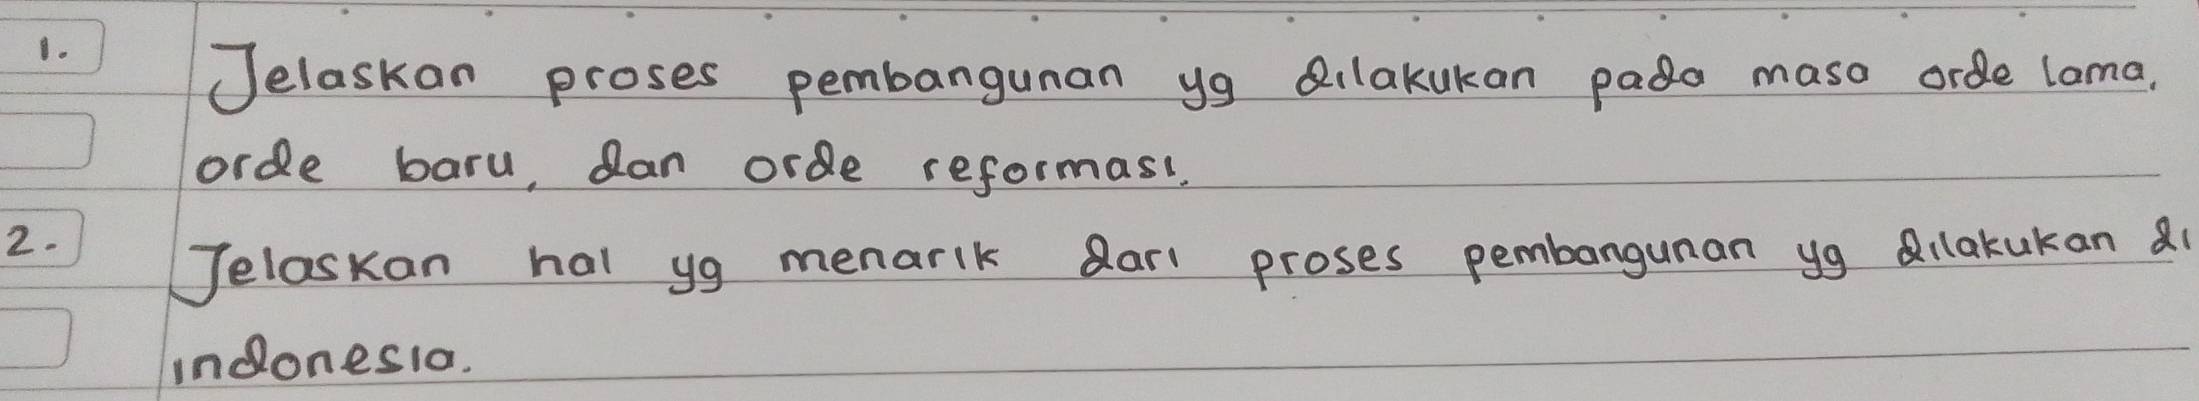 1. Jelaskan proses pembangunan yg dilakukan pada masa orde lama,
orde baru, dan orde reformasi.
2. Jelaskan hal yg menarik dari proses pembangunan yg dilakukan di
indonesia.